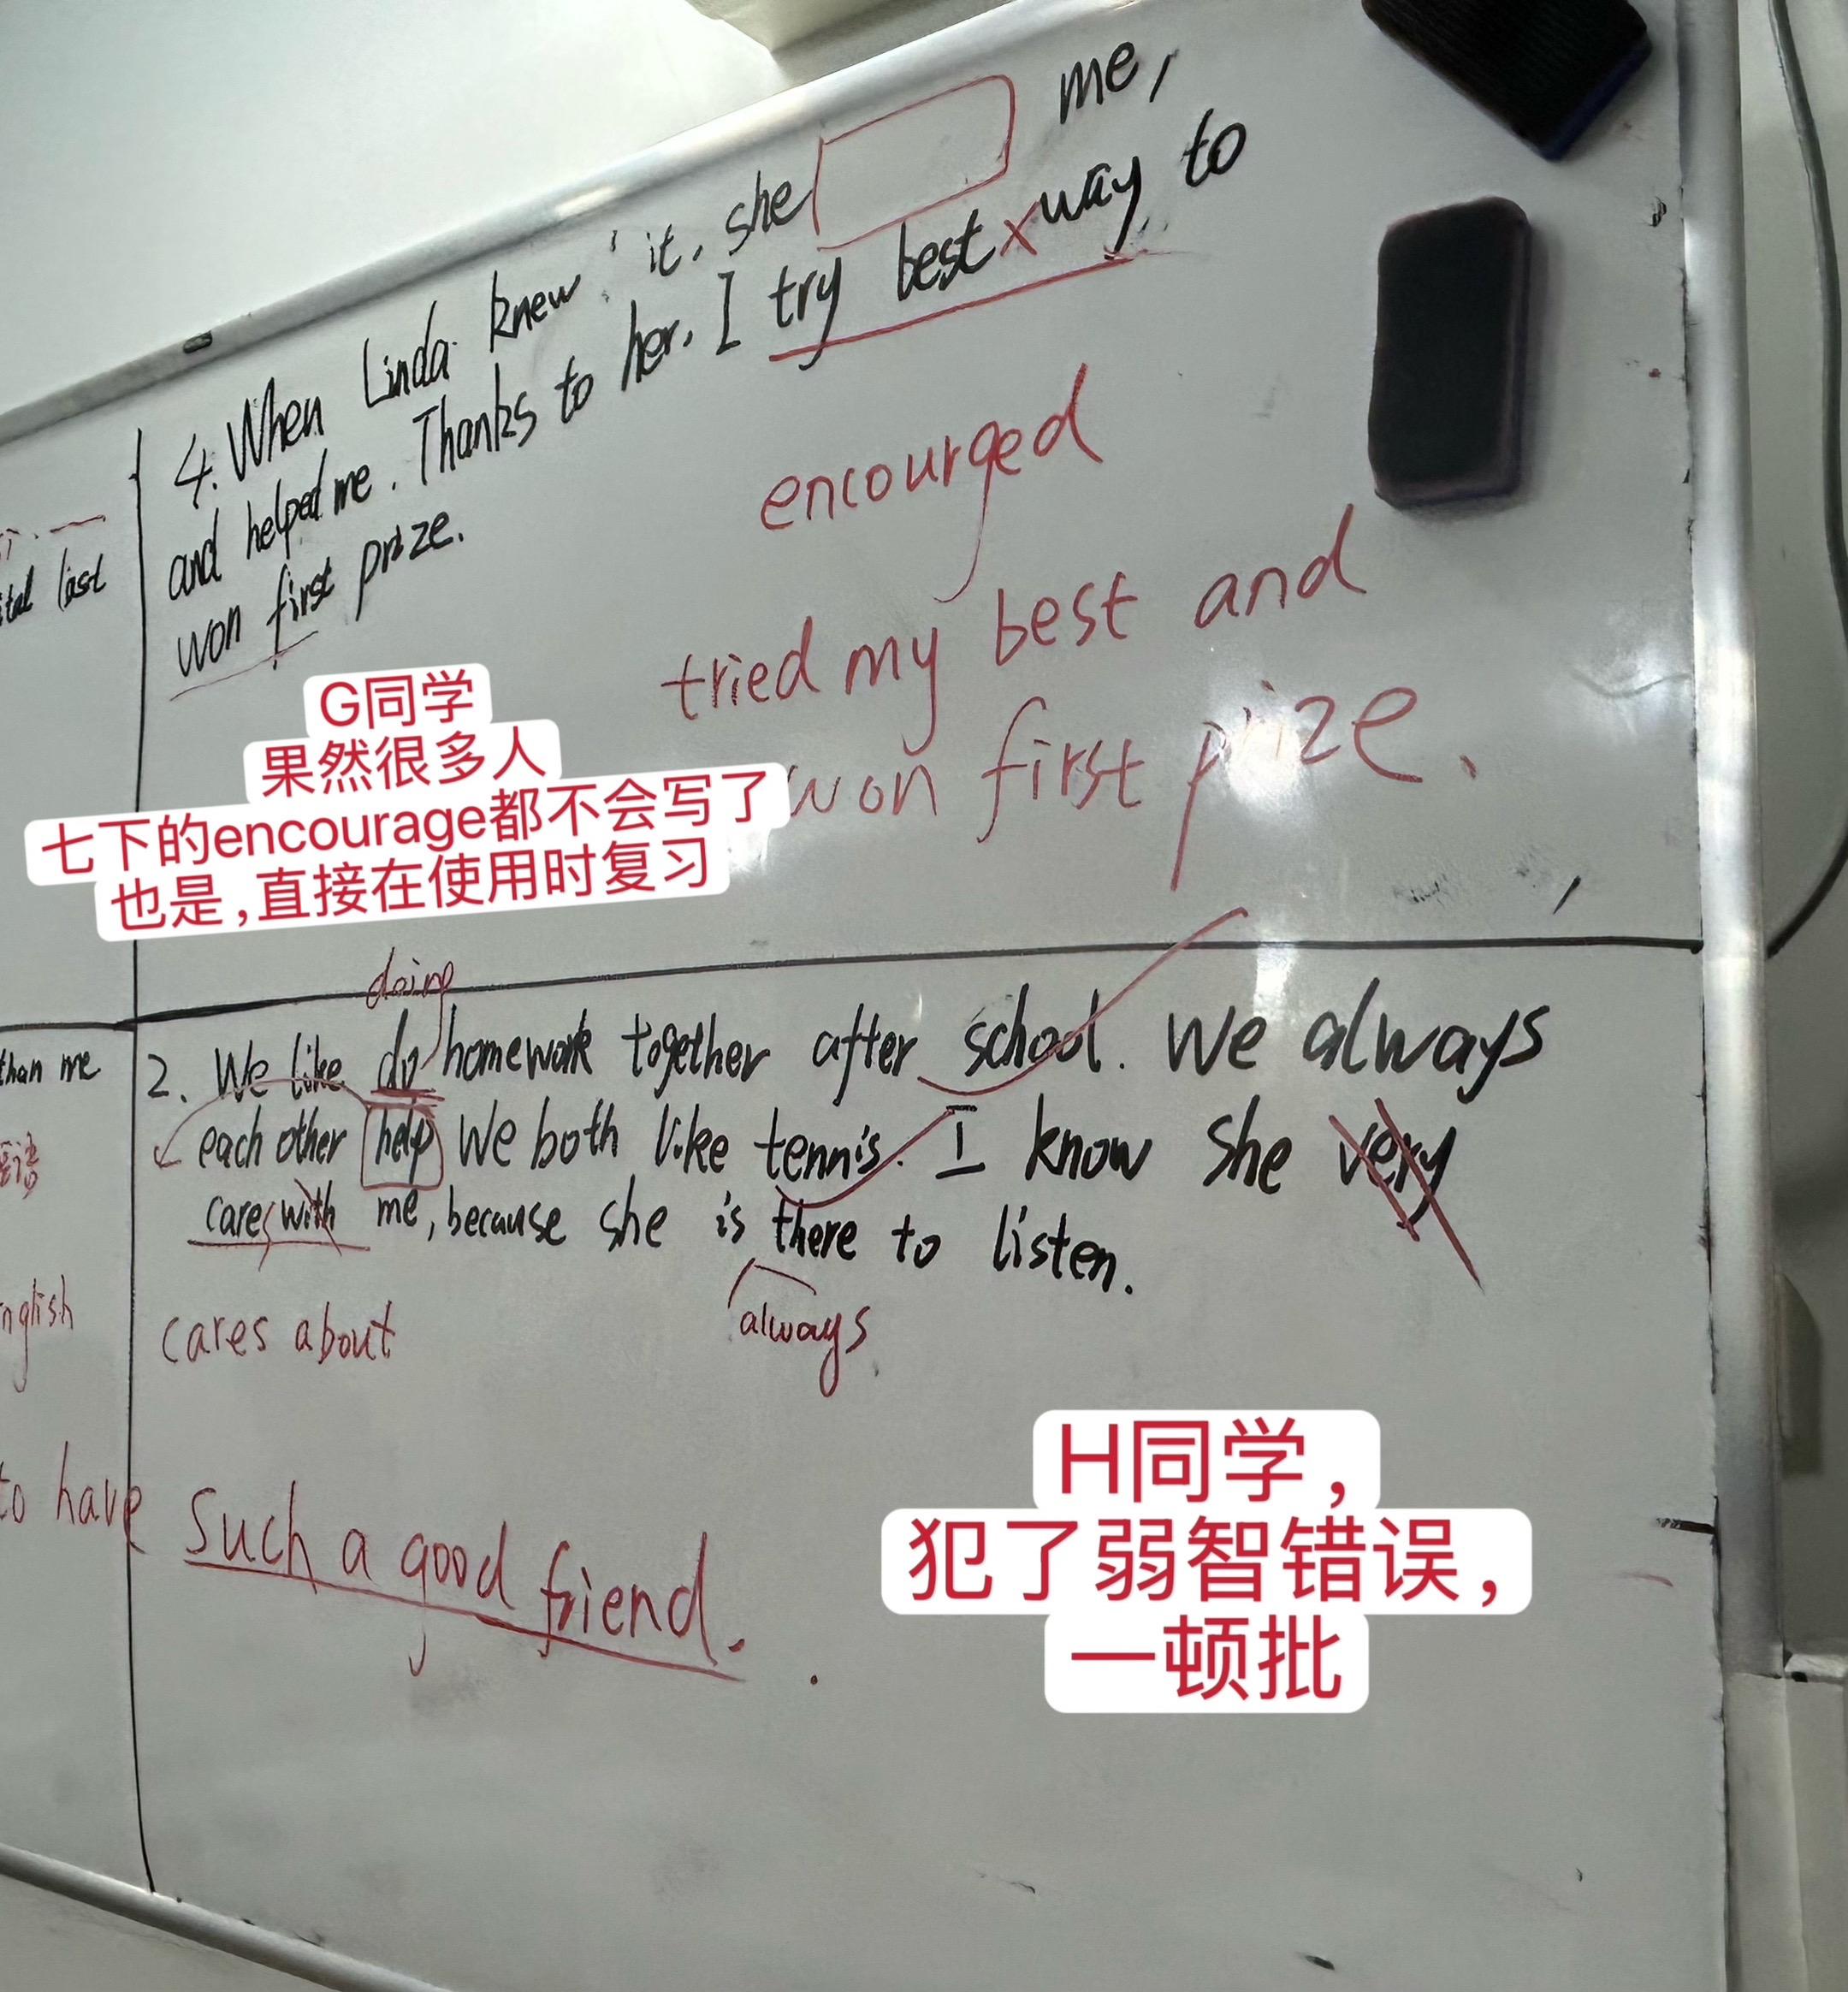 4. When Linda knew it, she me,
and helped me. Thanks to her, I try best x way to
won first prize.
encourged
tried my best and
won first prize.
G同学
果然很多人
七下的encourage都不会写了
也是,直接在使用时复习
last
doing
2. We like do homework together after school. We always
each other help We both like tennis. I know she very
cares with me, because she is there to listen.
always
cares about
than me
语
nglish
to have such a good friend.
H同学,
犯了弱智错误,
一顿批